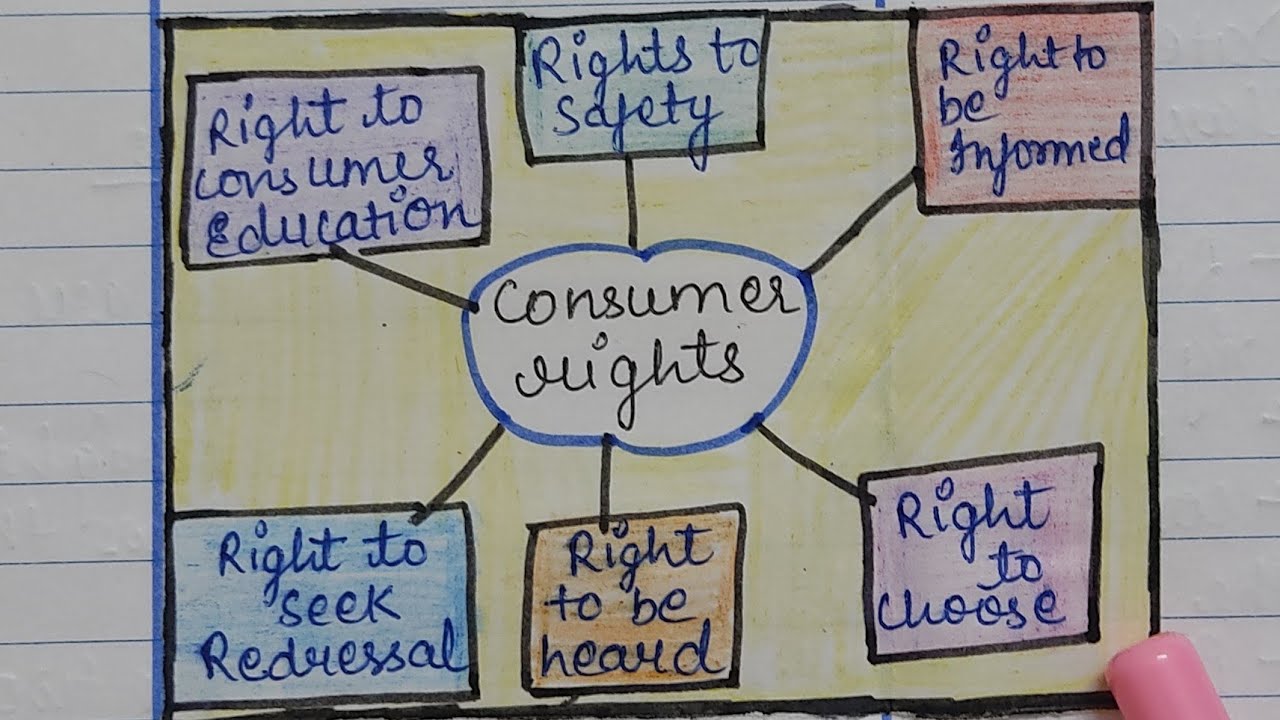 Rights to
safety
Right to
be
Informed
Right to
consumer
Education
consumer
rights
Right to
seek
Redressal
Right
to be
heard
Right
to
choose